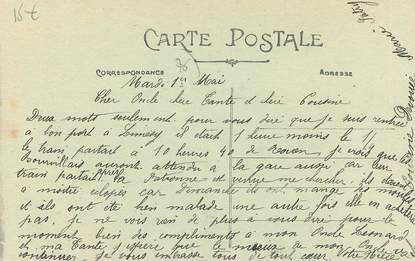 15€
CARTE POSTALE
CORRESPONDANCE
ADRESSE
Mardi 1er Mai
Cher Oncle chère Tante et chère Cousine
Deux mots seulement pour vous dire que je suis rentrée
à bon port à il était 1 heure moins le 1/4
le train partait à 10 heures 40 de je crois que les
auront attendu a la gare aussi car leur
train partait la Patronne est venue me chercher ils étaient
a moitié car Dimanche ils ont mangé des moules
et ils ont été bien malade une autre fois elle en achètera
pas. je ne vois rien de plus a vous dire pour le
moment bien des compliments a mon Oncle Leonard
et ma Tante j'espère que le mieux de mon Oncle va
continuer. je vous embrasse tous de tout cœur Votre Nièce